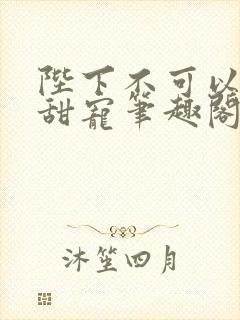 陛下不可以
甜寵筆趣閣
沐笙四月